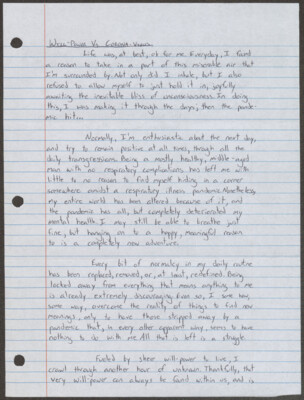 Will-Power Vs Corona-Virus
Life was, at best, ok for me. Everyday, I found
a reason to take in a part of this miserable air that
I'm surrounded by. Not only did I inhale, but I also
refused to allow myself to just hold it in, joyfully
awaiting the inevitable bliss of unconsciousness. In doing
this, I was making it through the days; then the pande-
mic hit...
Normally, I'm enthusiastic about the next day,
and try to remain positive at all times, through all the
daily transgressions. Being a mostly healthy, middle-aged
man with no respiratory complications has left me with
little to no reason to find myself hiding in a corner
somewhere amidst a respiratory illness pandemic. Nonetheless,
my entire world has been altered because of it, and
the pandemic has all but completely deteriorated my
mental health. I may still be able to breathe just
fine, but hanging on to a happy, meaningful reason
to is a completely new adventure.
Every bit of normalcy in my daily routine
has been replaced, removed, or, at least, redefined. Being
locked away from everything that means anything to me
is already extremely discouraging. Even so, I somehow,
some way, overcome the reality of things to find new
meanings, only to have those stripped away by a
pandemic that, in every other apparent way, seems to have
nothing to do with me. All that is left is a struggle.
Fueled by sheer will-power to live, I
crawl through another hour of unknown. Thankfully, that
very will-power can always be found within us, and is